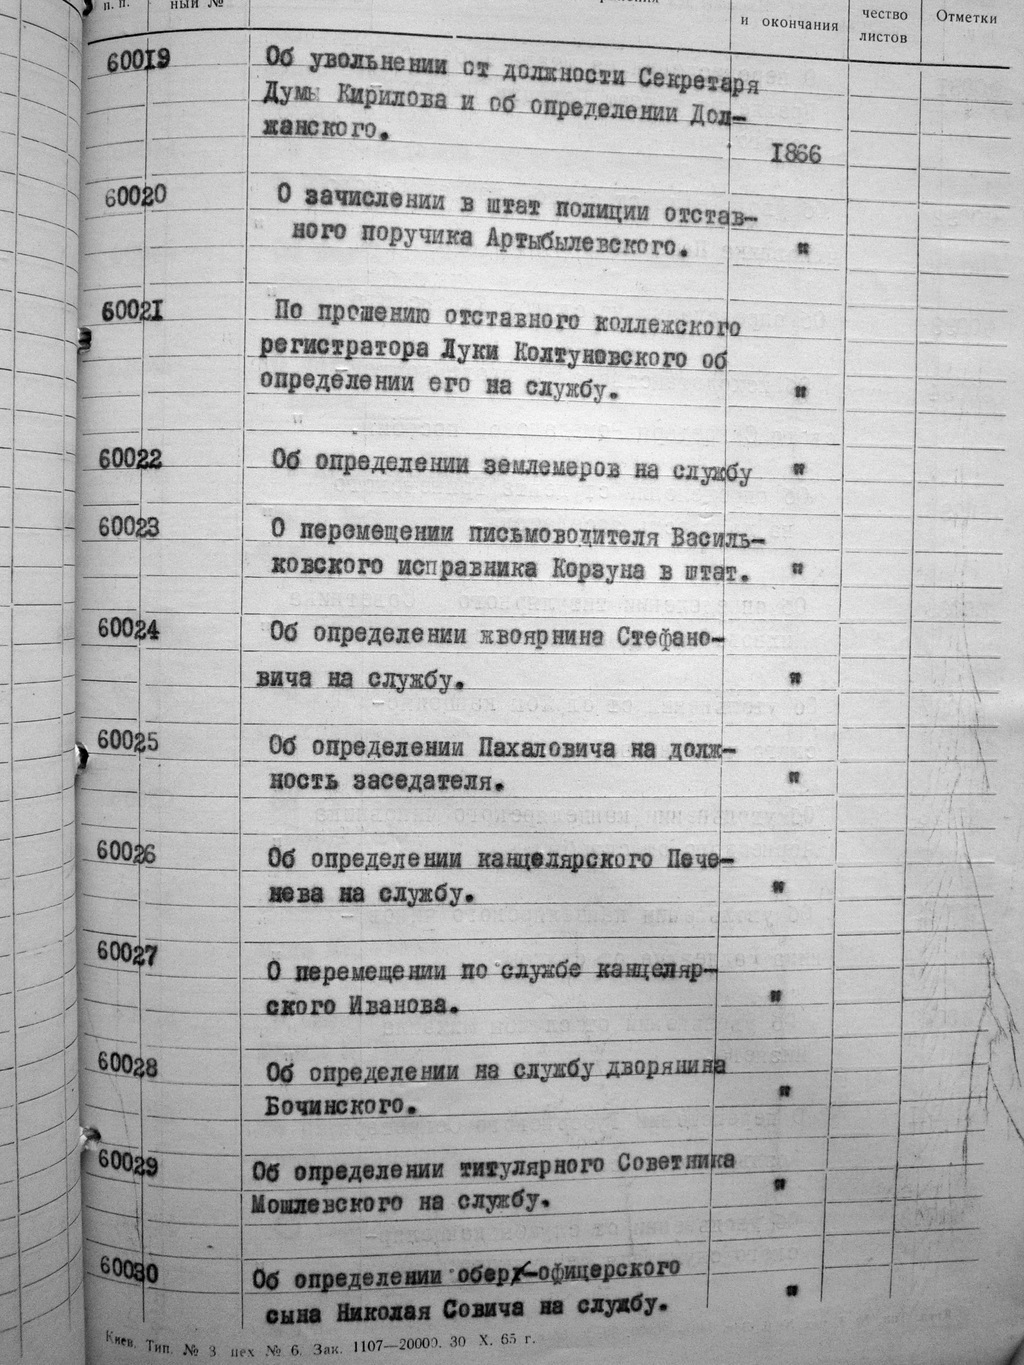 п. п.
ный №
и окончания
чество
листов
Отметки
60019 Об увольнении от должности Секретаря
Думы Кирилова и об определении Дол-
жанского.
1866
60020 О зачислении в штат полиции отстав-
ного поручика Артыбылевского. "
60021 По прошению отставного коллежского
регистратора Луки Колтуновского об
определении его на службу. "
60022 Об определении землемеров на службу "
60023 О перемещении письмоводителя Василь-
ковского исправника Корзуна в штат. "
60024 Об определении квоярнина Стефано-
вича на службу. "
60025 Об определении Пахаловича на долж-
ность заседателя. "
60026 Об определении канцелярского Пече-
нева на службу. "
60027 О перемещении по службе канцеляр-
ского Иванова. "
60028 Об определении на службу дворянина
Бочинского. "
60029 Об определении титулярного Советника
Мошлевского на службу. "
60030 Об определении обер-офицерского
сына Николая Совича на службу. "
Киев. Тип. № 3 цех № 6. Зак. 1107—20000. 30 X. 65 г.